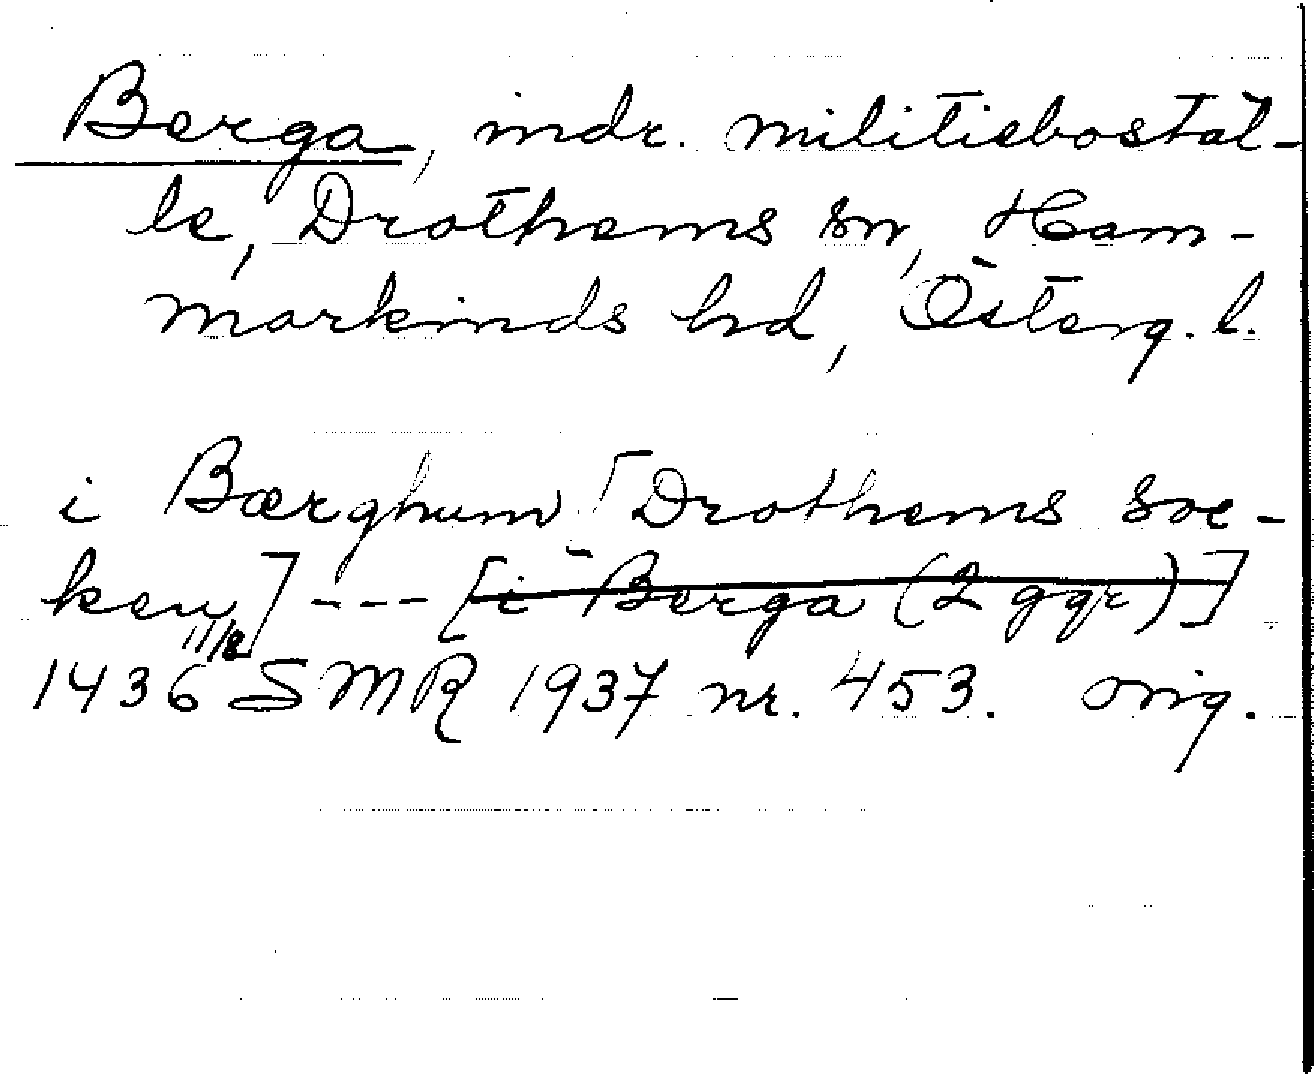 Berga, mdr. militiebostäl-
le, Drothems sn, Ham-
markinds hd, Österg. l.
i Bærghum [Drothems soc-
ken] --- [i Berga (2 ggr)]
1436 11/8 SMR 1937 nr. 453. orig.